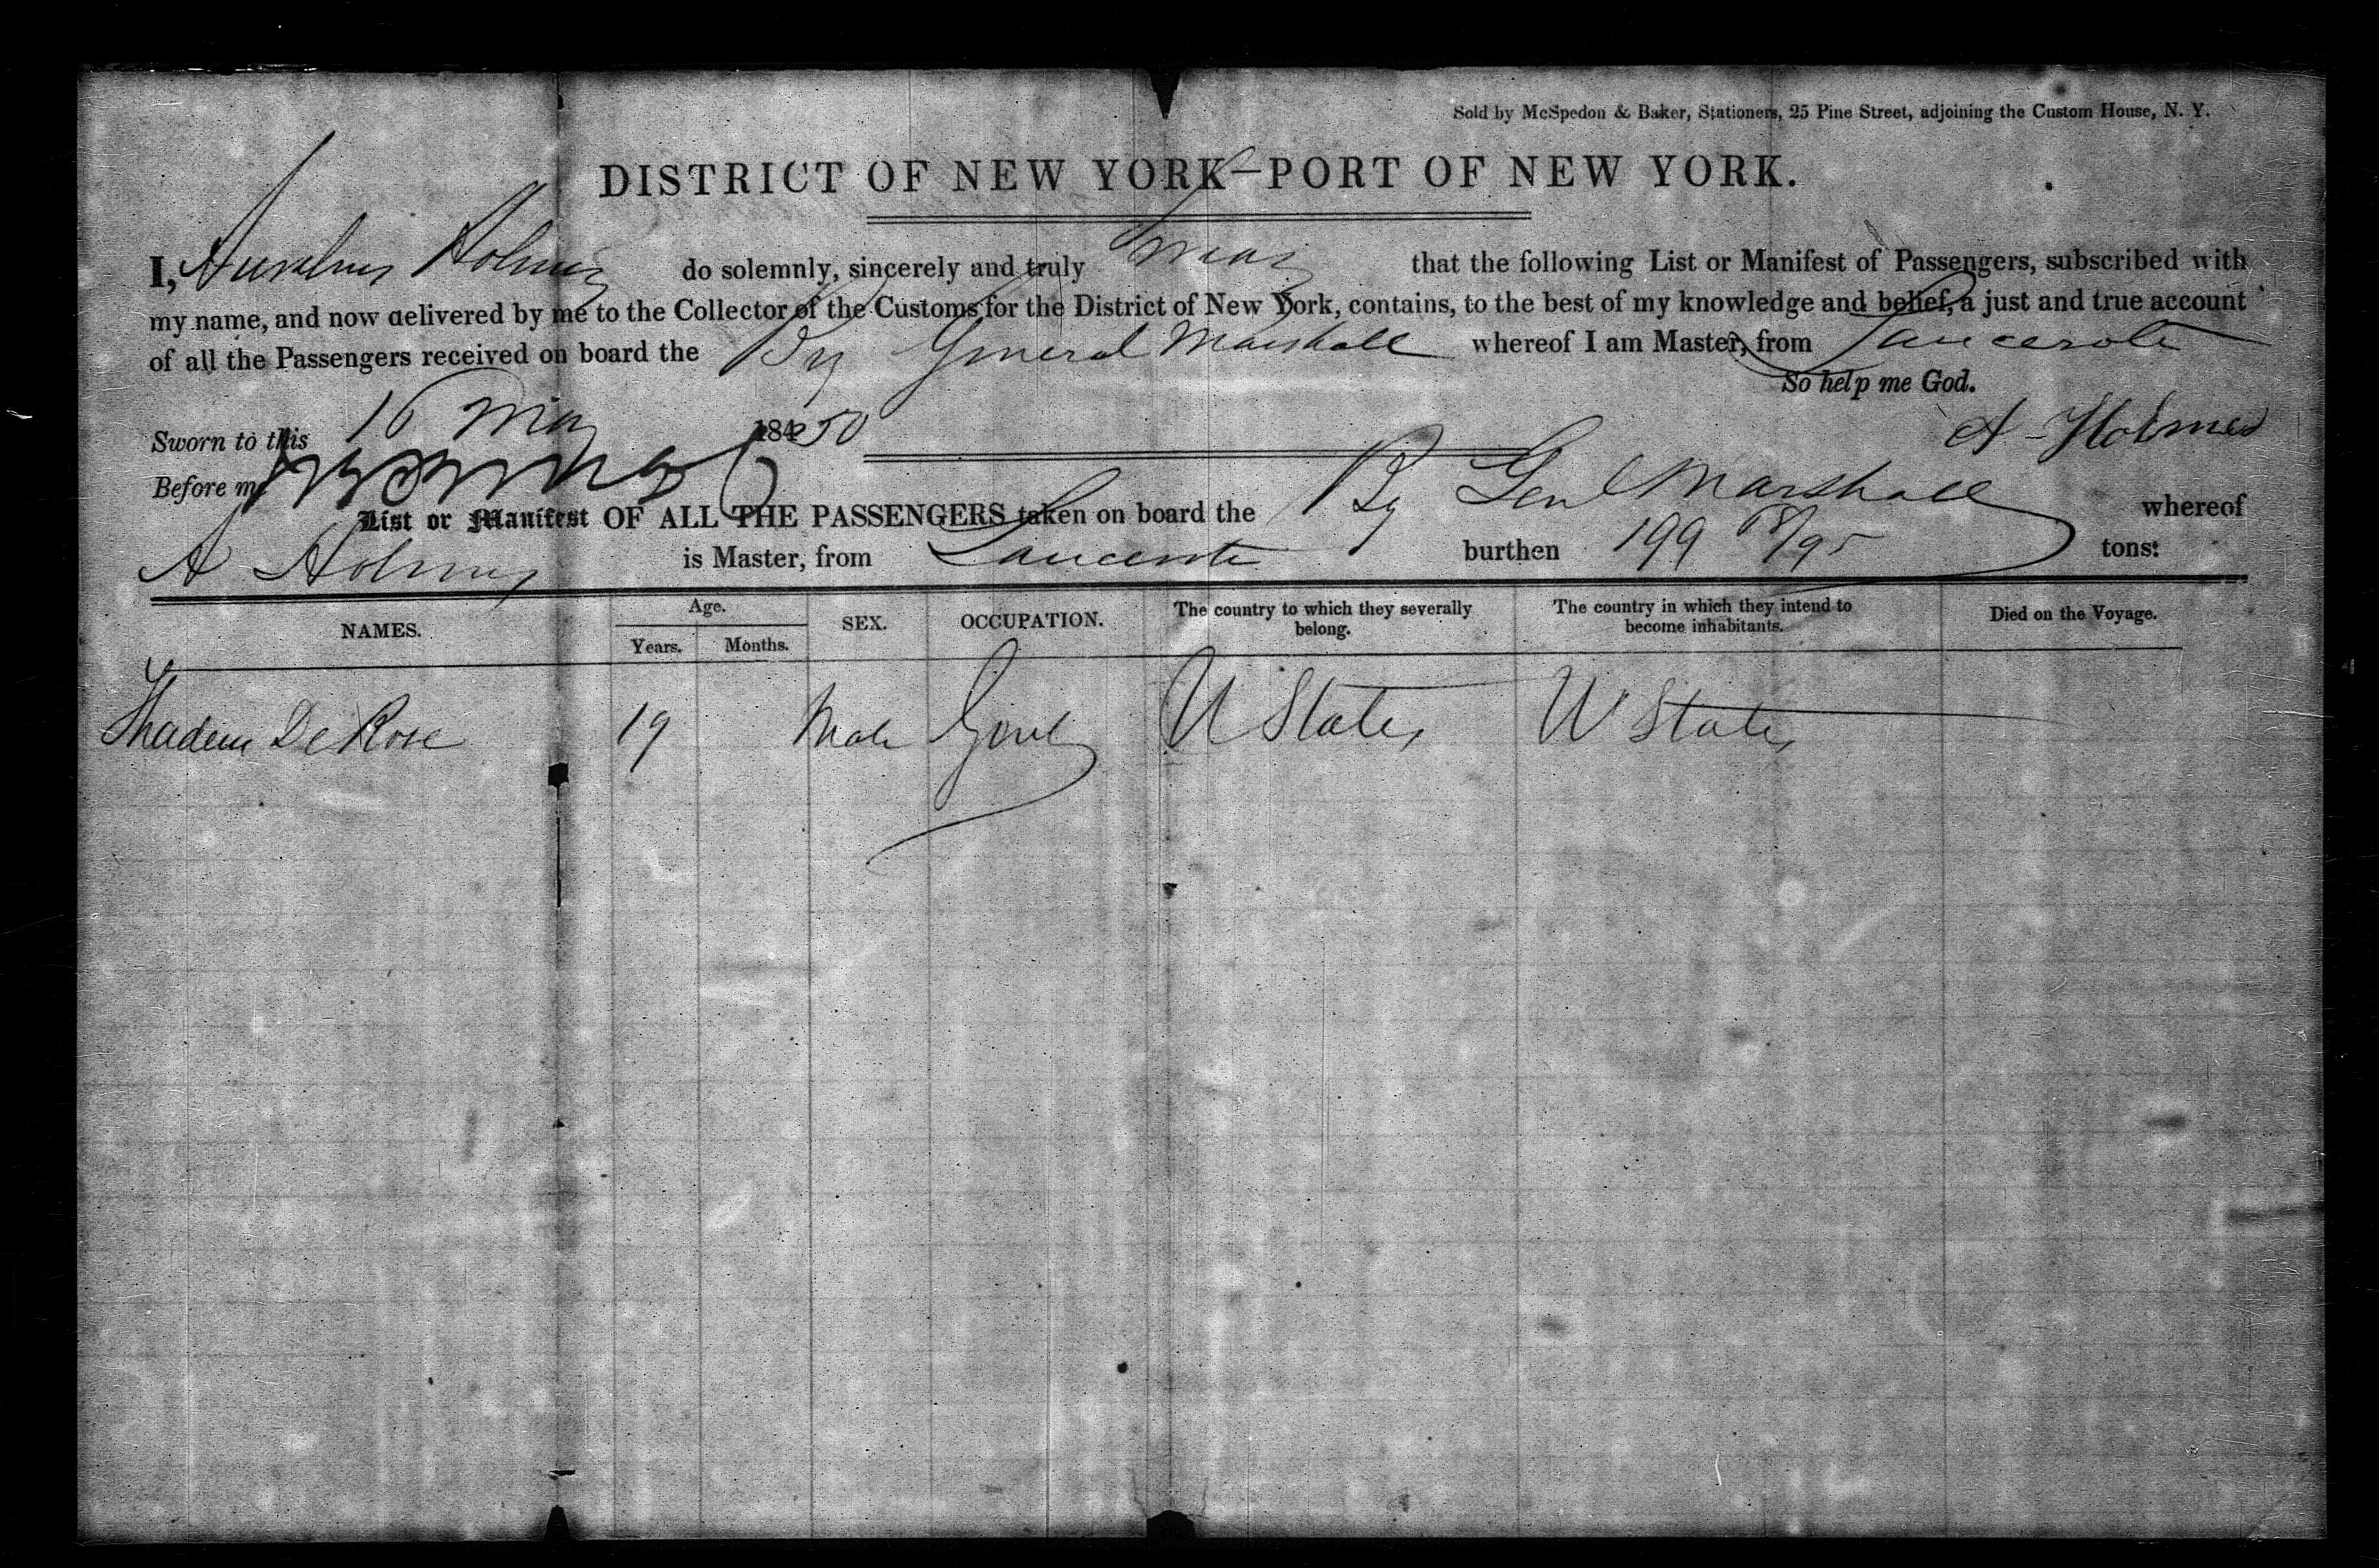 Sold by McSpedon & Baker, Stationers, 25 Pine Street, adjoining the Custom House, N. Y.
DISTRICT OF NEW YORK—PORT OF NEW YORK.
I, Holmes do solemnly, sincerely and truly swear that the following List or Manifest of Passengers, subscribed with
my name, and now delivered by me to the Collector of the Customs for the District of New York, contains, to the best of my knowledge and belief, a just and true account
of all the Passengers received on board the Bg General Marshall whereof I am Master, from Lancerote
So help me God.
Sworn to this 16 May 18450
A - Holmes
Before me
List or Manifest OF ALL THE PASSENGERS taken on board the Bg Genl Marshall whereof
A Holmes is Master, from Lancerote burthen 199 /95 tons:
NAMES. Age. Years. Months. SEX. OCCUPATION. The country to which they severally belong. The country in which they intend to become inhabitants. Died on the Voyage.
De Rose 19 Male Gent U States U States